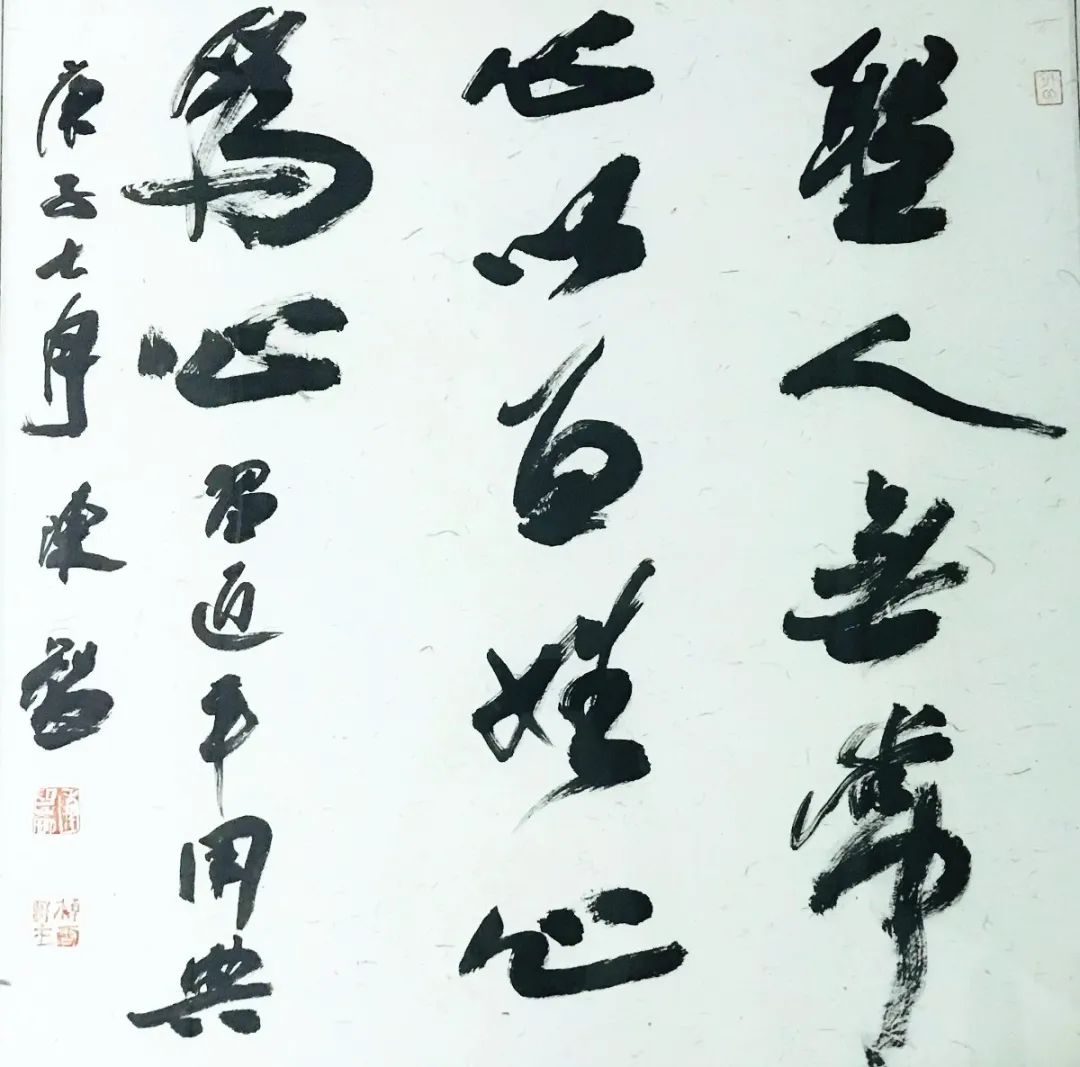 聖人無常
心以百姓心
爲心 習近平用典
庚子七 陳